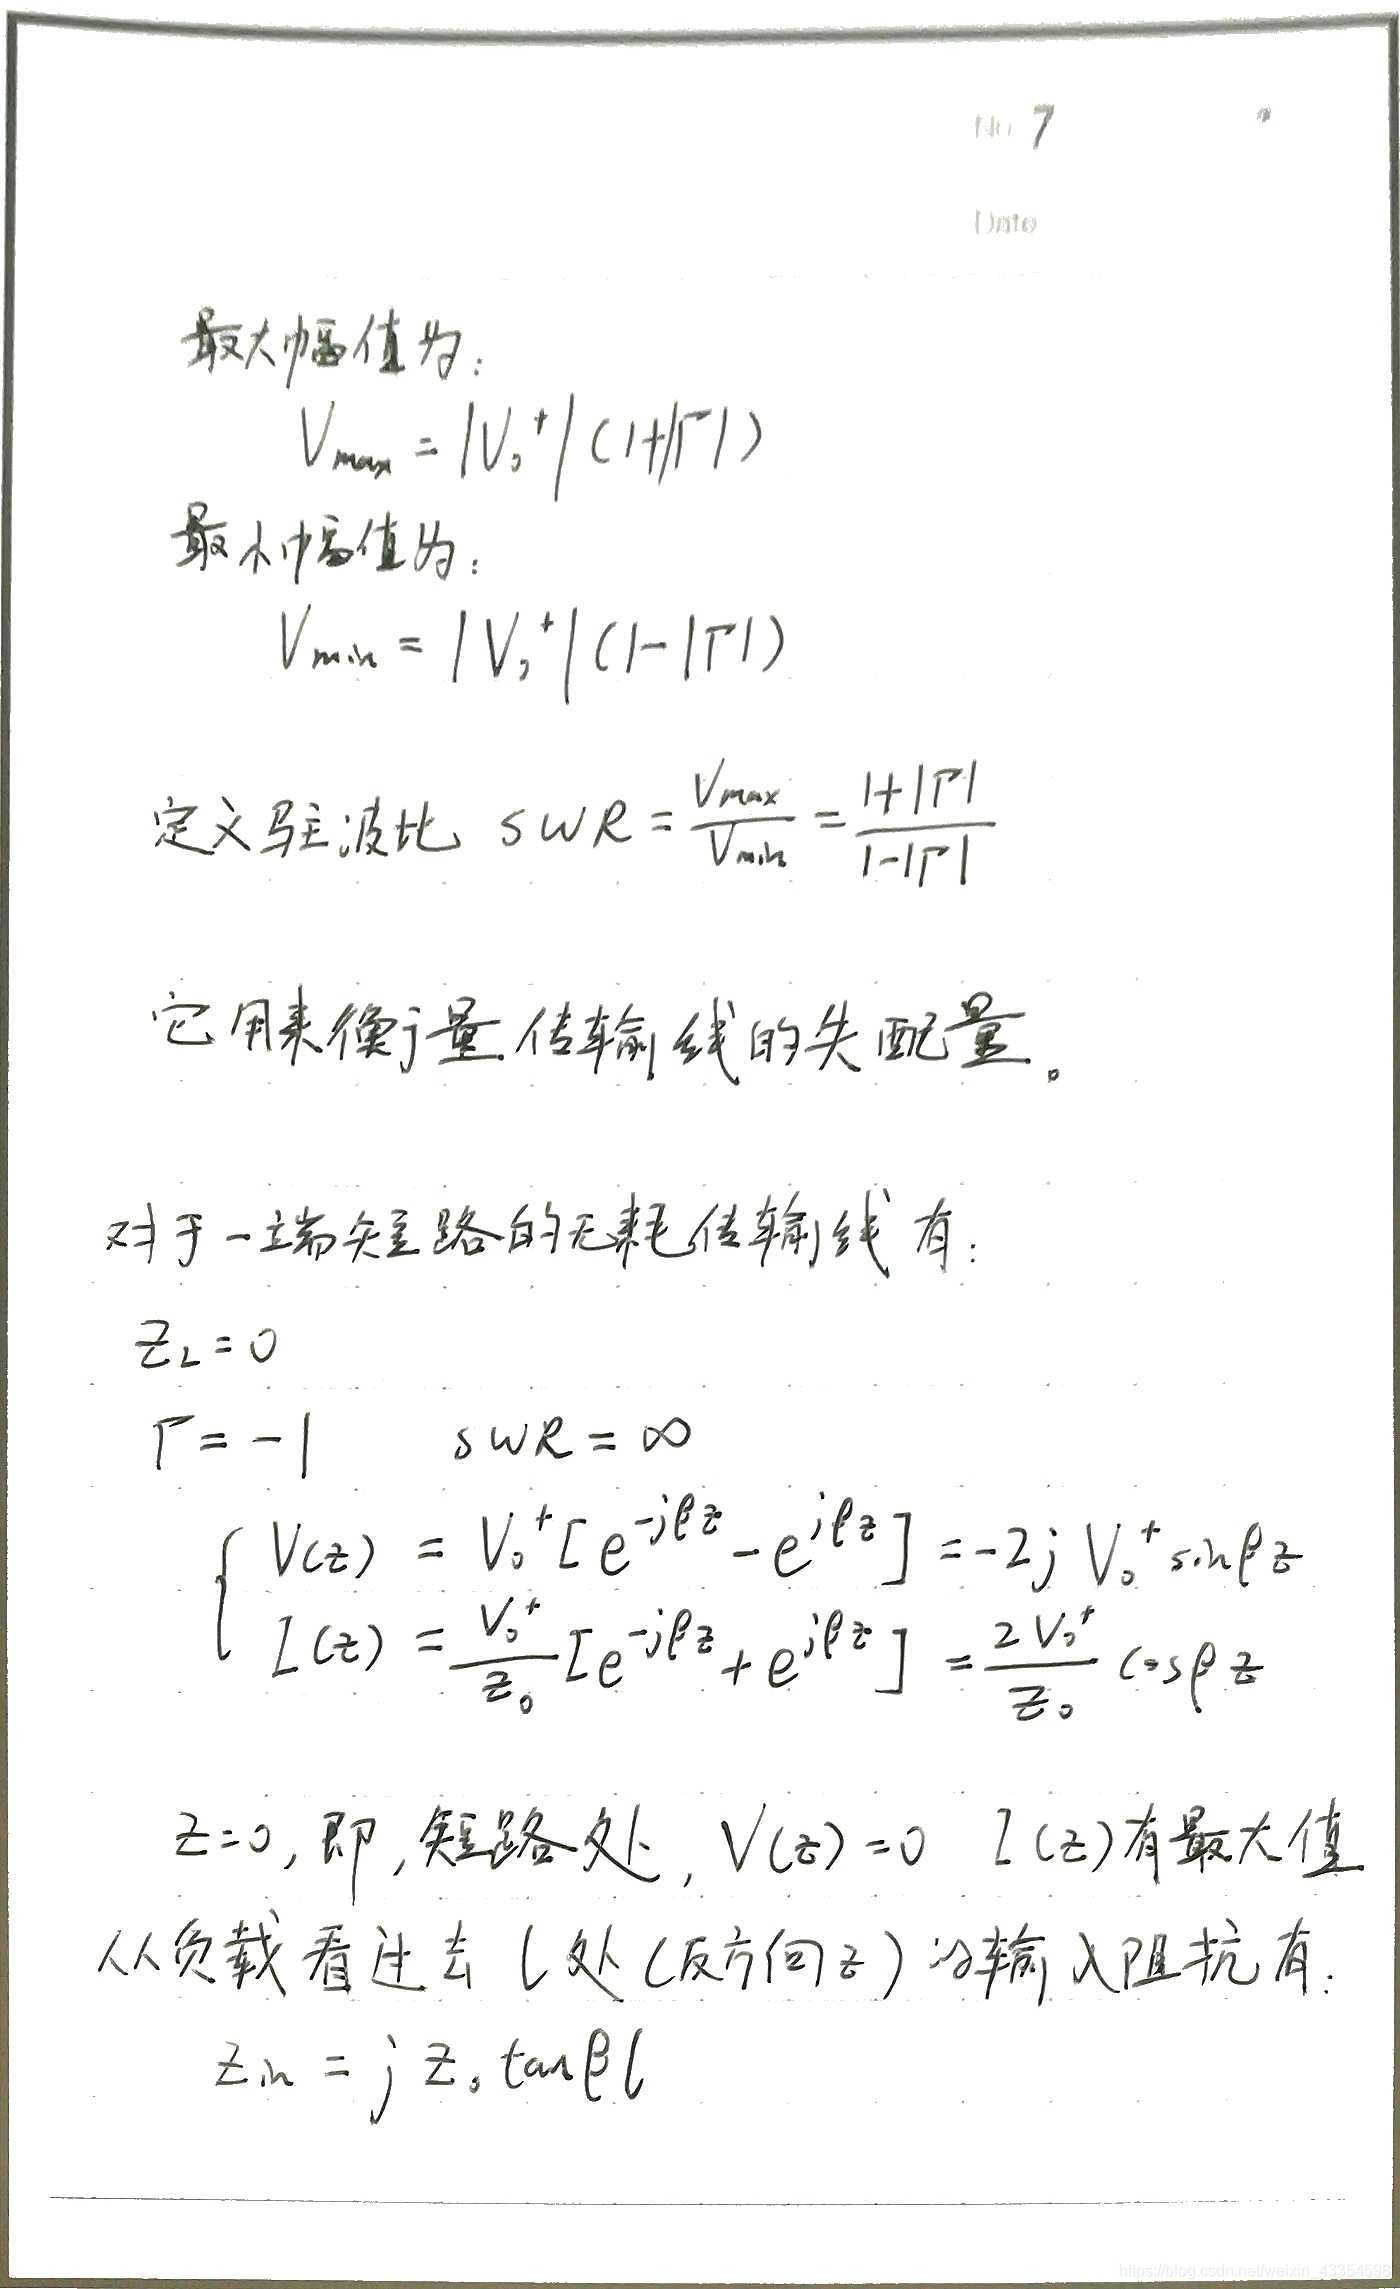 No. 7
Date
最大幅值为:
Vmax = |V₀⁺|(1+|Γ|)
最小幅值为:
Vmin = |V₀⁺|(1-|Γ|)
定义驻波比 SWR = Vmax/Vmin = (1+|Γ|)/(1-|Γ|)
它用来衡量传输线的失配量。
对于一端短路的无耗传输线有:
Z_L = 0
Γ = -1 SWR = ∞
{ V(z) = V₀⁺[e^{-jβz} - e^{jβz}] = -2j V₀⁺ sinβz
I(z) = V₀⁺/Z₀ [e^{-jβz} + e^{jβz}] = 2V₀⁺/Z₀ cosβz
z=0, 即, 短路处, V(z)=0 I(z)有最大值
从负载看过去 l 处(反方向z)的输入阻抗有:
Zin = j Z₀ tanβl
https://blog.csdn.net/weixin_43354598